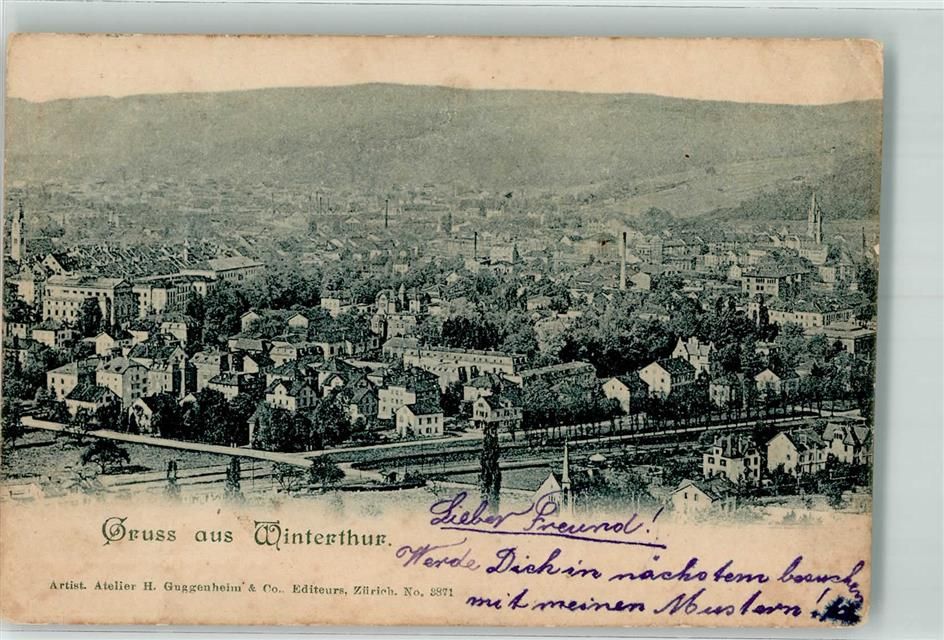 Gruss aus Winterthur.
Artist. Atelier H. Guggenheim & Co., Editeurs, Zürich. No. 3871
Lieber Freund!
Werde Dich in nächstem besuchen
mit meinen Mustern!